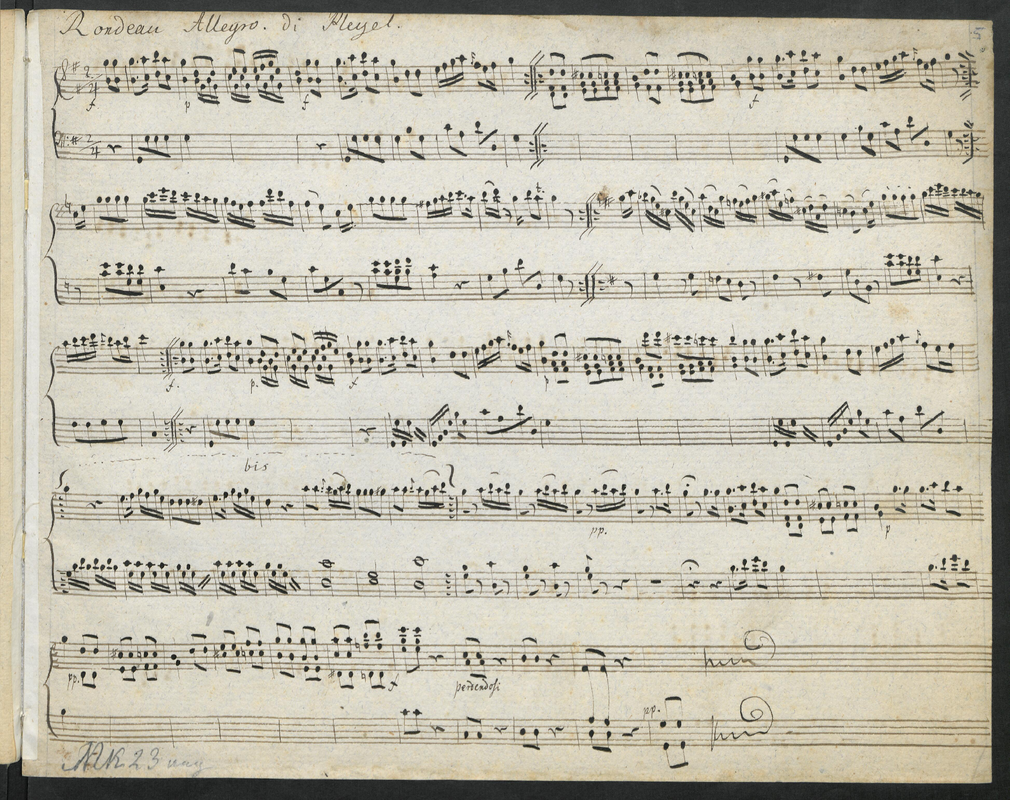 Rondeau Allegro. di Pleyel.
5
f p f
2/4
2/4
f. p. f
bis
pp. p
pp. f perdendosi
pp.
NK 23